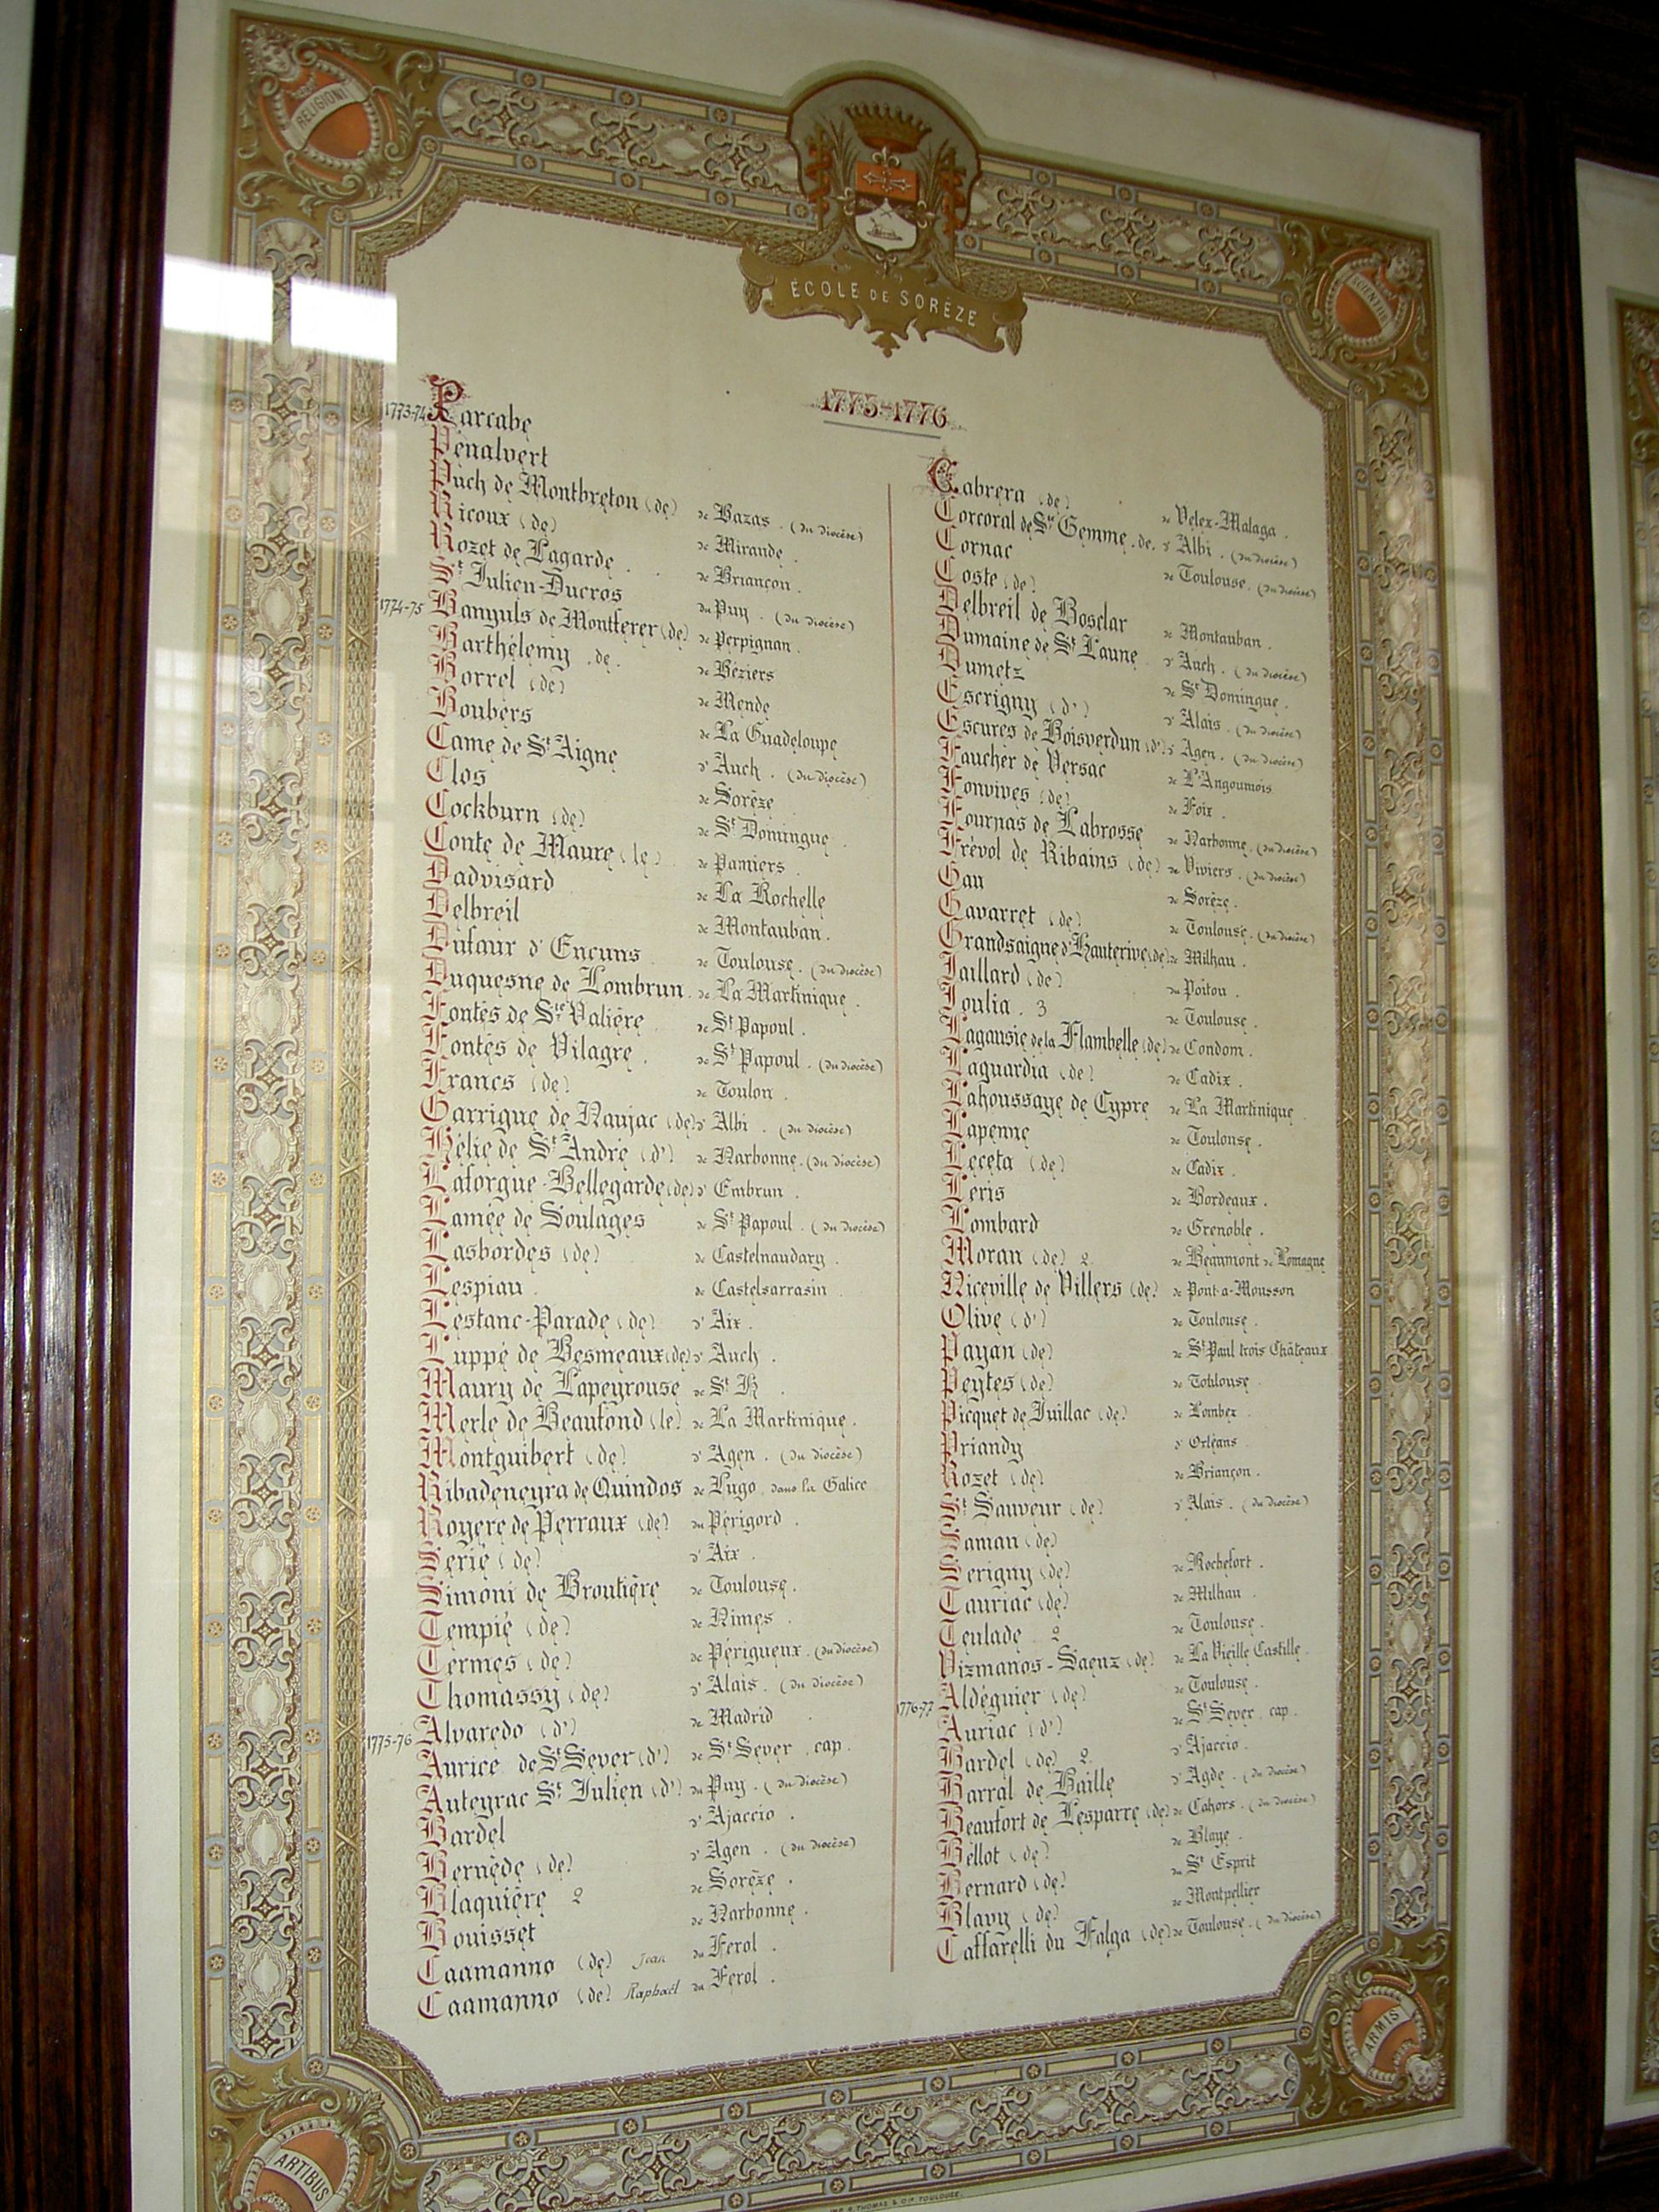 RELIGIONI
SCIENTIÆ
ÉCOLE DE SORÈZE
1775-1776
1773-74 Parcabe
Pénalvert
Puch de Montbreton (de) de Bazas. (du diocèse)
Ricoux (de) de Mirande.
Rozet de Lagarde. de Briançon.
St Julien-Ducros du Puy. (du diocèse)
1774-75 Banyuls de Montferer (de) de Perpignan.
Barthélemy (de) de Béziers
Borrel (de) de Mende
Boubers de La Guadeloupe
Came de St Aigne d'Auch. (du diocèse)
Clos de Sorèze
Cockburn (de) de St Domingue.
Conte de Maure (le) de Pamiers.
Dadvisard de La Rochelle
Delbreil de Montauban.
Dufaur d'Encuns de Toulouse. (du diocèse)
Duquesne de Lombrun. de La Martinique.
Fontés de Ste Valière de St Papoul.
Fontés de Vilagre. de St Papoul. (du diocèse)
Francs (de) de Toulon.
Garrigue de Naujac (de) d'Albi. (du diocèse)
Hélie de St André (d') de Narbonne. (du diocèse)
Laforgue-Bellegarde (de) d'Embrun.
Lamée de Soulages de St Papoul. (du diocèse)
Lasbordes (de) de Castelnaudary.
Lespiau de Castelsarrasin
Lestanc-Parade (de) d'Aix.
Luppé de Besmeaux (de) d'Auch.
Maury de Lapeyrouse de St H.
Merle de Beaufond (le) de La Martinique.
Montguibert (de) d'Agen. (du diocèse)
Ribadeneyra de Quindos de Lugo dans la Galice
Royere de Perraux (de) du Périgord.
Serié (de) d'Aix.
Simoni de Broutière de Toulouse.
Tempié (de) de Nimes.
Termes (de) de Périgueux. (du diocèse)
Thomassy (de) d'Alais. (du diocèse)
1775-76 Alvaredo (d') de Madrid
Aurice de St Sever (d') de St Sever cap.
Auteyrac St Julien (d') du Puy. (du diocèse)
Bardel d'Ajaccio.
Bernède (de) d'Agen. (du diocèse)
Blaquière 2 de Sorèze.
Bouisset de Narbonne.
Caamanno (de) Jean du Ferol.
Caamanno (de) Raphaël du Ferol.
Cabrera (de) de Velez-Malaga.
Corcoral de Ste Gemme (de) d'Albi. (du diocèse)
Cornac de Toulouse. (du diocèse)
Coste (de)
Delbreil de Bosclar de Montauban.
Dumaine de St Laune d'Auch. (du diocèse)
Dumetz de St Domingue.
Escrigny (d') d'Alais. (du diocèse)
Escures de Boisverdun (d') d'Agen. (du diocèse)
Faucher de Versac de L'Angoumois
Fonvives (de) de Foix.
Fournas de Labrosse de Narbonne. (du diocèse)
Frévol de Ribains (de) de Viviers. (du diocèse)
Gau de Sorèze.
Gavarret (de) de Toulouse. (du diocèse)
Grandsaigne d'Hauterive (de) de Milhau.
Jaillard (de) du Poitou.
Joulia. 3 de Toulouse.
Lagausie de la Flambelle (de) de Condom.
Laguardia (de) de Cadix.
Lahoussaye de Cypre de La Martinique
Lapenne de Toulouse.
Leceta (de) de Cadix.
Leris de Bordeaux.
Lombard de Grenoble.
Moran (de) 2 de Beaumont de Lomagne
Niceville de Villers (de) de Pont-a-Mousson
Olive (d') de Toulouse.
Payan (de) de St Paul trois Châteaux
Peytes (de) de Toulouse
Picquet de Juillac (de) de Lombez
Priandy d'Orléans
Rozet (de) de Briançon.
St Sauveur (de) d'Alais. (du diocèse)
Saman (de)
Serigny (de) de Rochefort.
Tauriac (de) de Milhau
Teulade 2 de Toulouse.
Vizmanos-Saenz (de) de La Vieille Castille.
1776-77 Aldéguier (de) de Toulouse.
Auriac (d') de St Sever cap.
Bardel (de) 2 d'Ajaccio.
Barral de Baille d'Agde. (du diocèse)
Beaufort de Lesparre (de) de Cahors. (du diocèse)
Bellot (de) de Blaye.
Bernard (de) du St Esprit
Blavy (de) de Montpellier
Caffarelli du Falga (de) de Toulouse. (du diocèse)
ARTIBUS
ARMIS
IMP. B. THOMAS & Cie TOULOUSE.